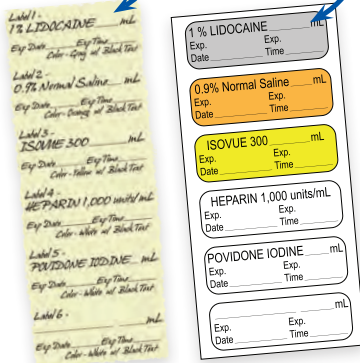 Label 1 -
1% LIDOCAINE ____ mL
Exp Date____ Exp Time____
Color - Gray w/ Black Text
Label 2 -
0.9% Normal Saline ____ mL
Exp Date____ Exp Time____
Color - Orange w/ Black Text
Label 3 -
ISOVUE 300 ____ mL
Exp Date____ Exp Time____
Color - Yellow w/ Black Text
Label 4 -
HEPARIN 1,000 units/mL
Exp Date____ Exp Time____
Color - White w/ Black Text
Label 5 -
POVIDONE IODINE __ mL
Exp Date____ Exp Time____
Color - White w/ Black Text
Label 6 -
____ mL
Exp Date____ Exp Time____
Color - White w/ Black Text
1 % LIDOCAINE ____ mL
Exp. Exp.
Date____ Time____
0.9% Normal Saline ____ mL
Exp. Exp.
Date____ Time____
ISOVUE 300 ____ mL
Exp. Exp.
Date____ Time____
HEPARIN 1,000 units/mL
Exp. Exp.
Date____ Time____
POVIDONE IODINE ____ mL
Exp. Exp.
Date____ Time____
____ mL
Exp. Exp.
Date____ Time____